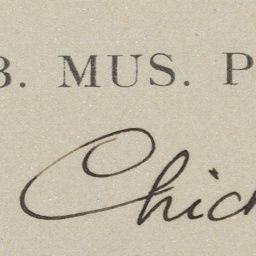 B. MUS. P
Chich